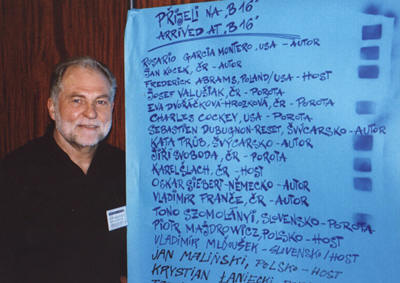 PŘIJELI NA „B16"
ARRIVED AT „B16"
ROSARIO GARCIA MONTERO, USA - AUTOR
JAN KOCEK, ČR - AUTOR
FREDERICK ABRAMS, POLAND/USA - HOST
JOSEF VALUŠIAK, ČR - POROTA
EVA DVOŘÁČKOVÁ-HROZKOVÁ, ČR - POROTA
CHARLES COCKEY, USA - POROTA
SEBASTIEN DUBUGNON-RESET, ŠVÝCARSKO - AUTOR
KATA TRÜB, ŠVÝCARSKO - AUTOR
JIŘÍ SVOBODA, ČR - POROTA
KAREL ŠLACH, ČR - HOST
OSKAR SIEBERT-NĚMECKO - AUTOR
VLADIMÍR FRANČE, ČR - AUTOR
TONO SZOMOLÁNYI, SLOVENSKO - POROTA
PIOTR MAJDROWICZ, POLSKO - HOST
VLADIMÍR MLČOUŠEK - SLOVENSKO/HOST
JAN MALIŃSKI, POLSKO - HOST
KRYSTIAN ŁANIECKI,